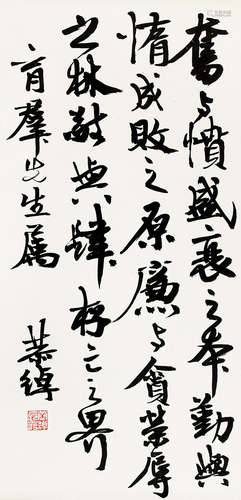 奮与憤盛衰之本勤與
惰成敗之原廉与貪榮辱
之林敬與肆存亡之界
育羣先生屬
恭綽